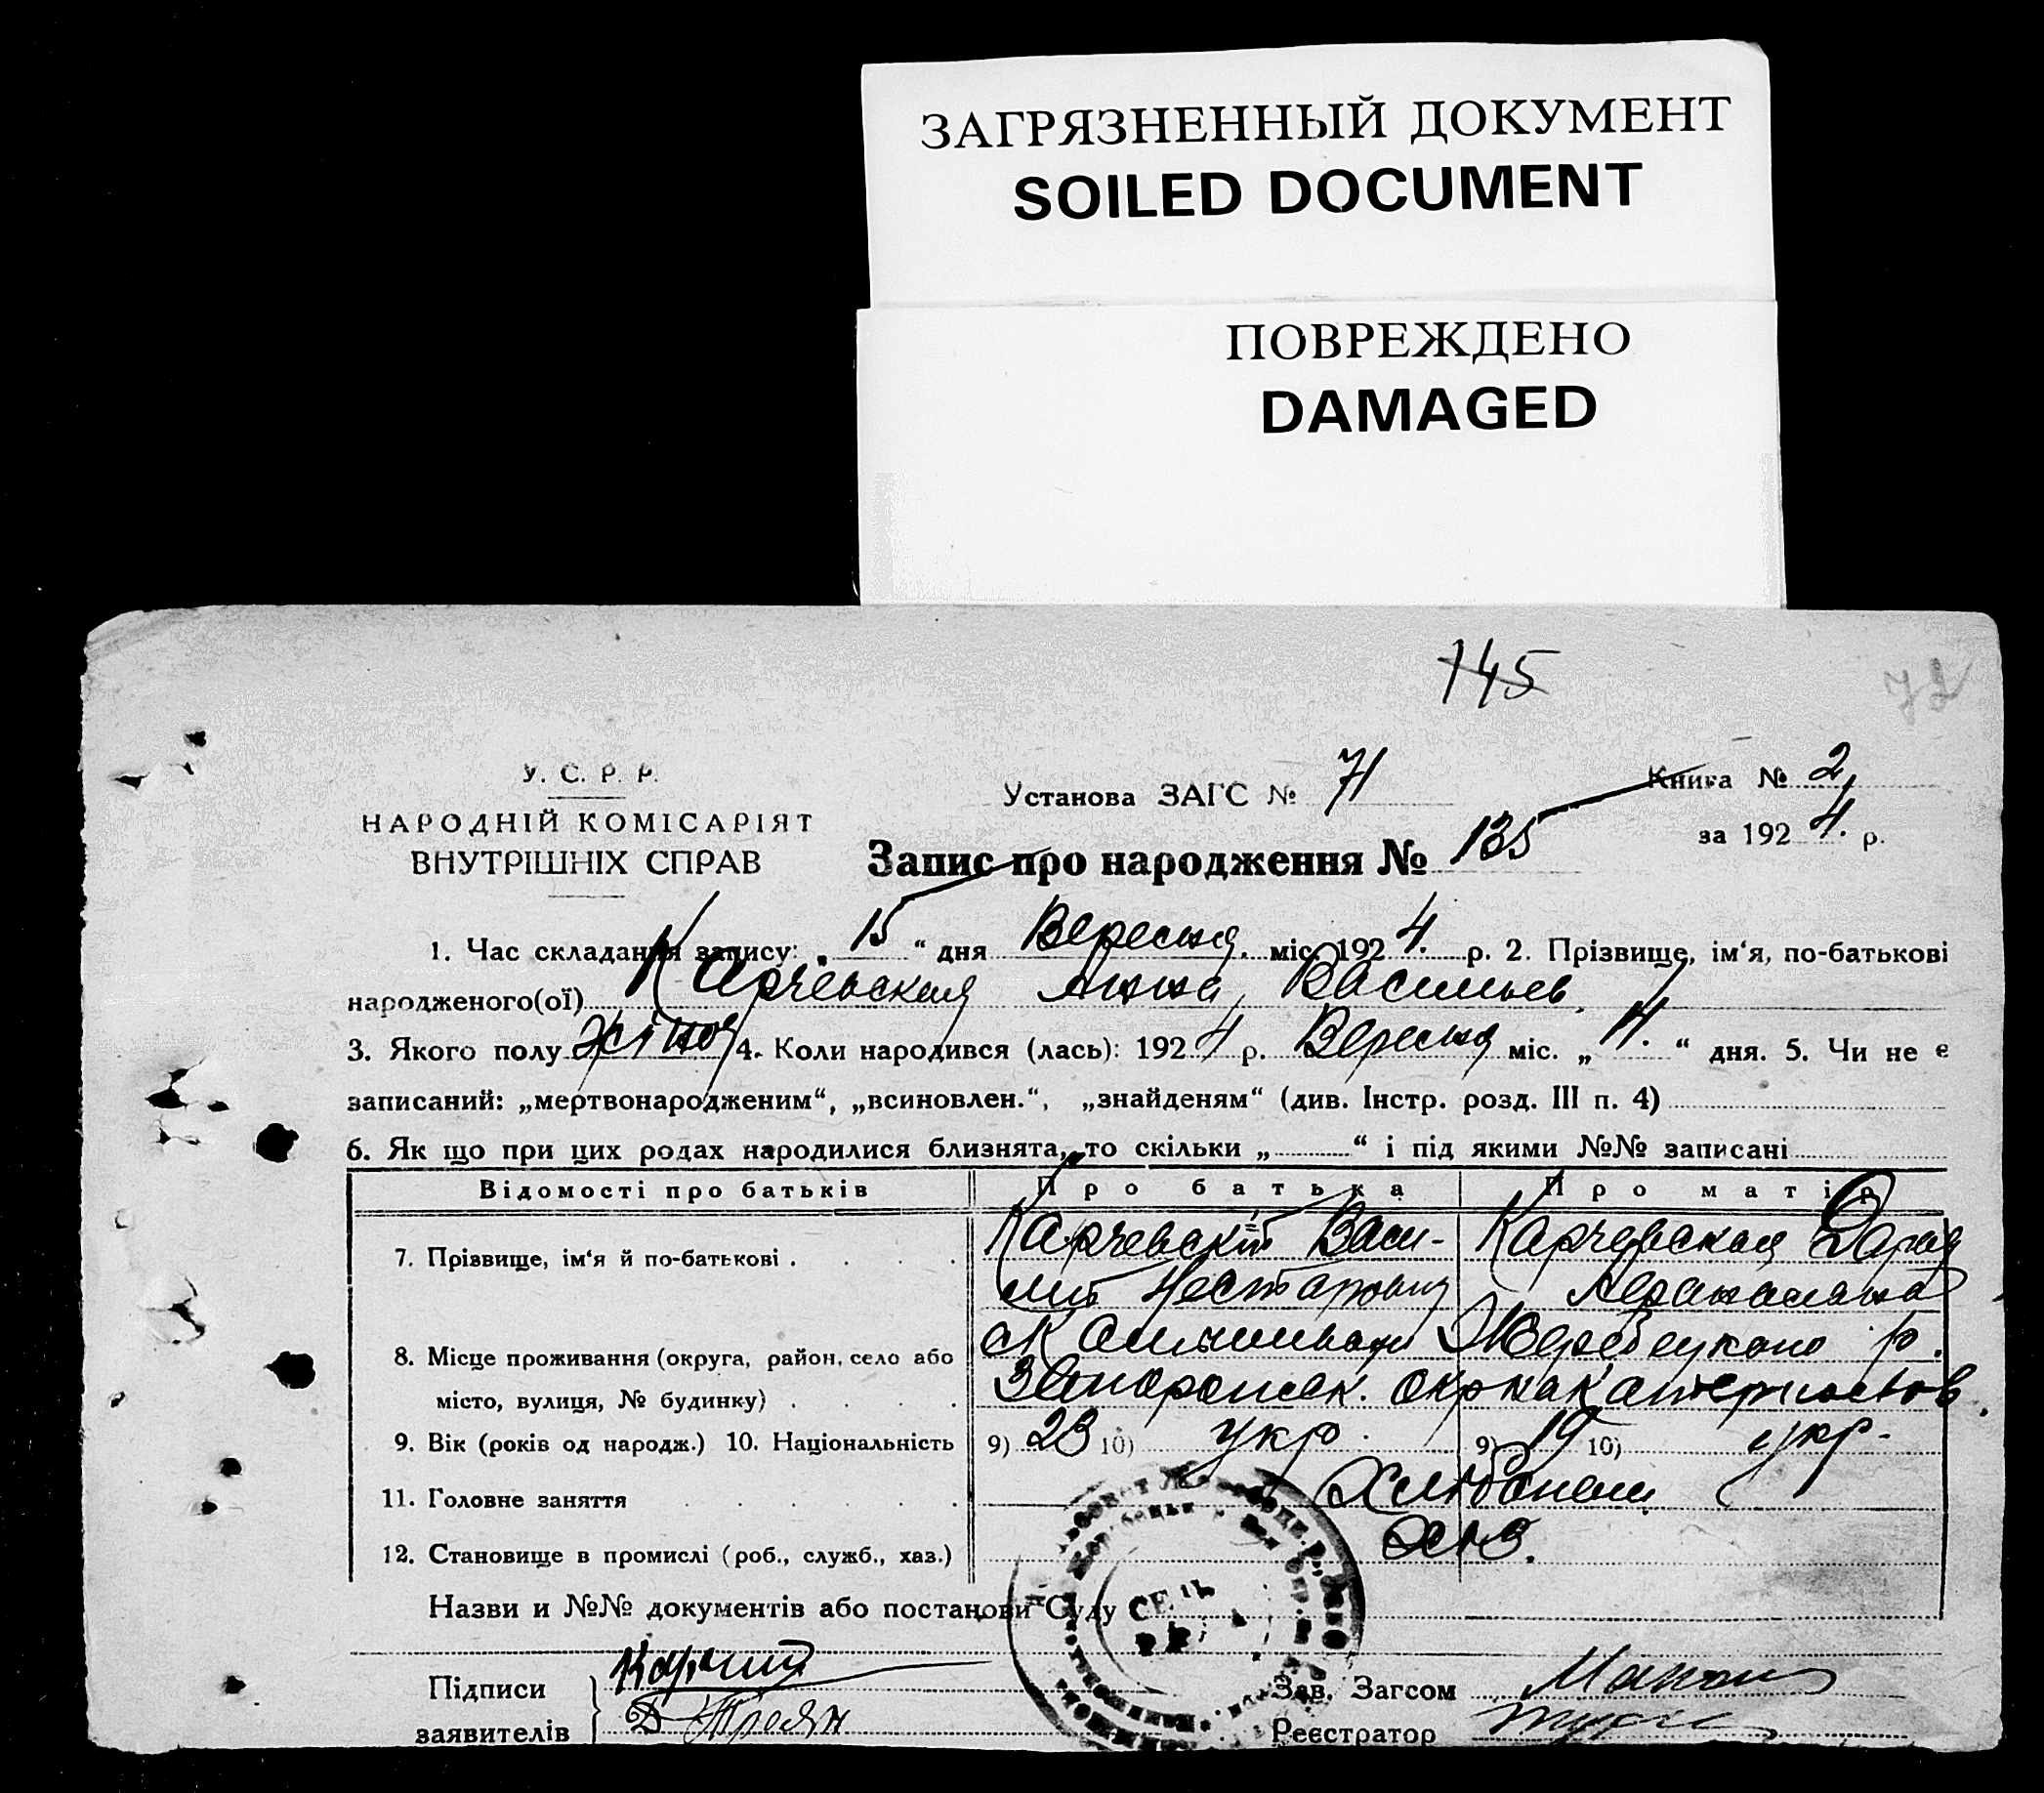 ЗАГРЯЗНЕННЫЙ ДОКУМЕНТ
SOILED DOCUMENT
ПОВРЕЖДЕНО
DAMAGED
145
72
У. С. Р. Р.
НАРОДНІЙ КОМІСАРІЯТ
ВНУТРІШНІХ СПРАВ
Установа ЗАГС № 71
Книга № 2
за 1924. р.
Запис про народження № 135
1. Час складання запису: „15“ дня Вересня міс. 1924. р. 2. Прізвище, ім‘я, по-батькові
народженого(ої) Карчевская Анна Васильев.
3. Якого полу жіноч 4. Коли народився (лась): 1924 р. Вересня міс. „ “ дня. 5. Чи не є
записаний: „мертвонародженим“, „всиновлен.“, „знайденям“ (див. Інстр. розд. III п. 4)
6. Як що при цих родах народилися близнята, то скільки „ “ і під якими №№ записані
Відомості про батьків Про батька Про матір
7. Прізвище, ім‘я й по-батькові . . . . Карчевский Васи- Карчевская Дарья
лий Нестарович
8. Місце проживання (округа, район, село або Жеребецкого р.
місто, вулиця, № будинку) . . . . Запорожск. окр
9. Вік (років од народж.) 10. Національність 9) 23 10) укр. 9) 19 10) укр.
11. Головне заняття . . . . . . Хлібопаш
12. Становище в промислі (роб., служб., хаз.)
Назви и №№ документів або постанови Суду
Підписи
заявителів Д Троян
Зав. Загсом
Реєстратор